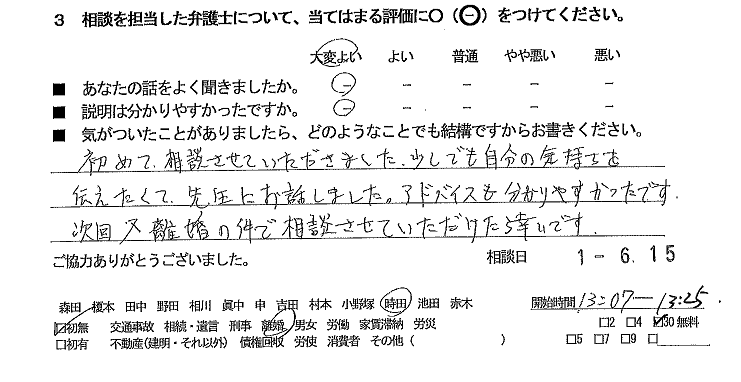 3 相談を担当した弁護士について、当てはまる評価に○（㊀）をつけてください。
大変よい よい 普通 やや悪い 悪い
■ あなたの話をよく聞きましたか。 － － － － －
■ 説明は分かりやすかったですか。 － － － － －
■ 気がついたことがありましたら、どのようなことでも結構ですからお書きください。
初めて、相談させていただきました。少しでも自分の気持ちを
伝えたくて、先生にお話しました。アドバイスも分かりやすかったです。
次回又離婚の件で相談させていただけたら幸いです。
ご協力ありがとうございました。 相談日 1－6.15
森田 榎本 田中 野田 相川 眞中 申 吉田 村本 小野塚 時田 池田 赤木 開始時間 13:07－13:25
☑初無 交通事故 相続・遺言 刑事 離婚 男女 労働 家賃滞納 労災 □2 □4 ☑30無料
□初有 不動産（建明・それ以外） 債権回収 労使 消費者 その他（ ） □5 □7 □9 □